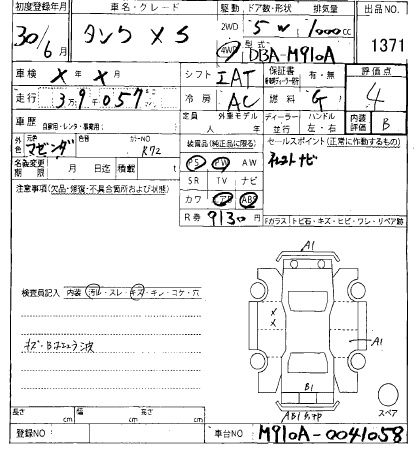 初度登録年月 車名・グレード 駆動 ドア数・形状 排気量 出品NO
30/6月 タンク XS 2WD 4WD 5W 1000cc 1371
型式 DBA-M910A
車検 X年X月 シフト IAT 保証書 有・無 評価点
走行 3万9千057 冷房 AC 燃料 G 4
車歴 自家用・レンタ・事業用( ) 定員 外車モデル ディーラー 並行 ハンドル 左・右 内装評価 B
外色 元色 マゼンダ 色替 カラーNO R72 装備品(純正品に限る) セールスポイント(正常に作動するもの)
名義変更期限 月 日迄 積載 t PS PW AW
注意事項(欠品・修復・不具合箇所および状態) SR TV ナビ
カワ アB ABS
R券 9130円 Fガラス トビ石・キズ・ヒビ・ワレ・リペア跡
A1
検査員記入 内装 汚レ・スレ・キズ・キレ・コゲ・穴
X
X
A1
B1
スペア
長さ cm 幅 cm 高さ cm
登録NO 車台NO M910A-0041058